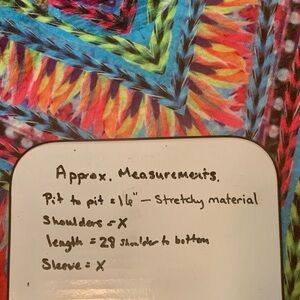 Approx. Measurements.
Pit to pit = 16" — Stretchy material
Shoulders = X
length = 28 shoulder to bottom
Sleeve = X